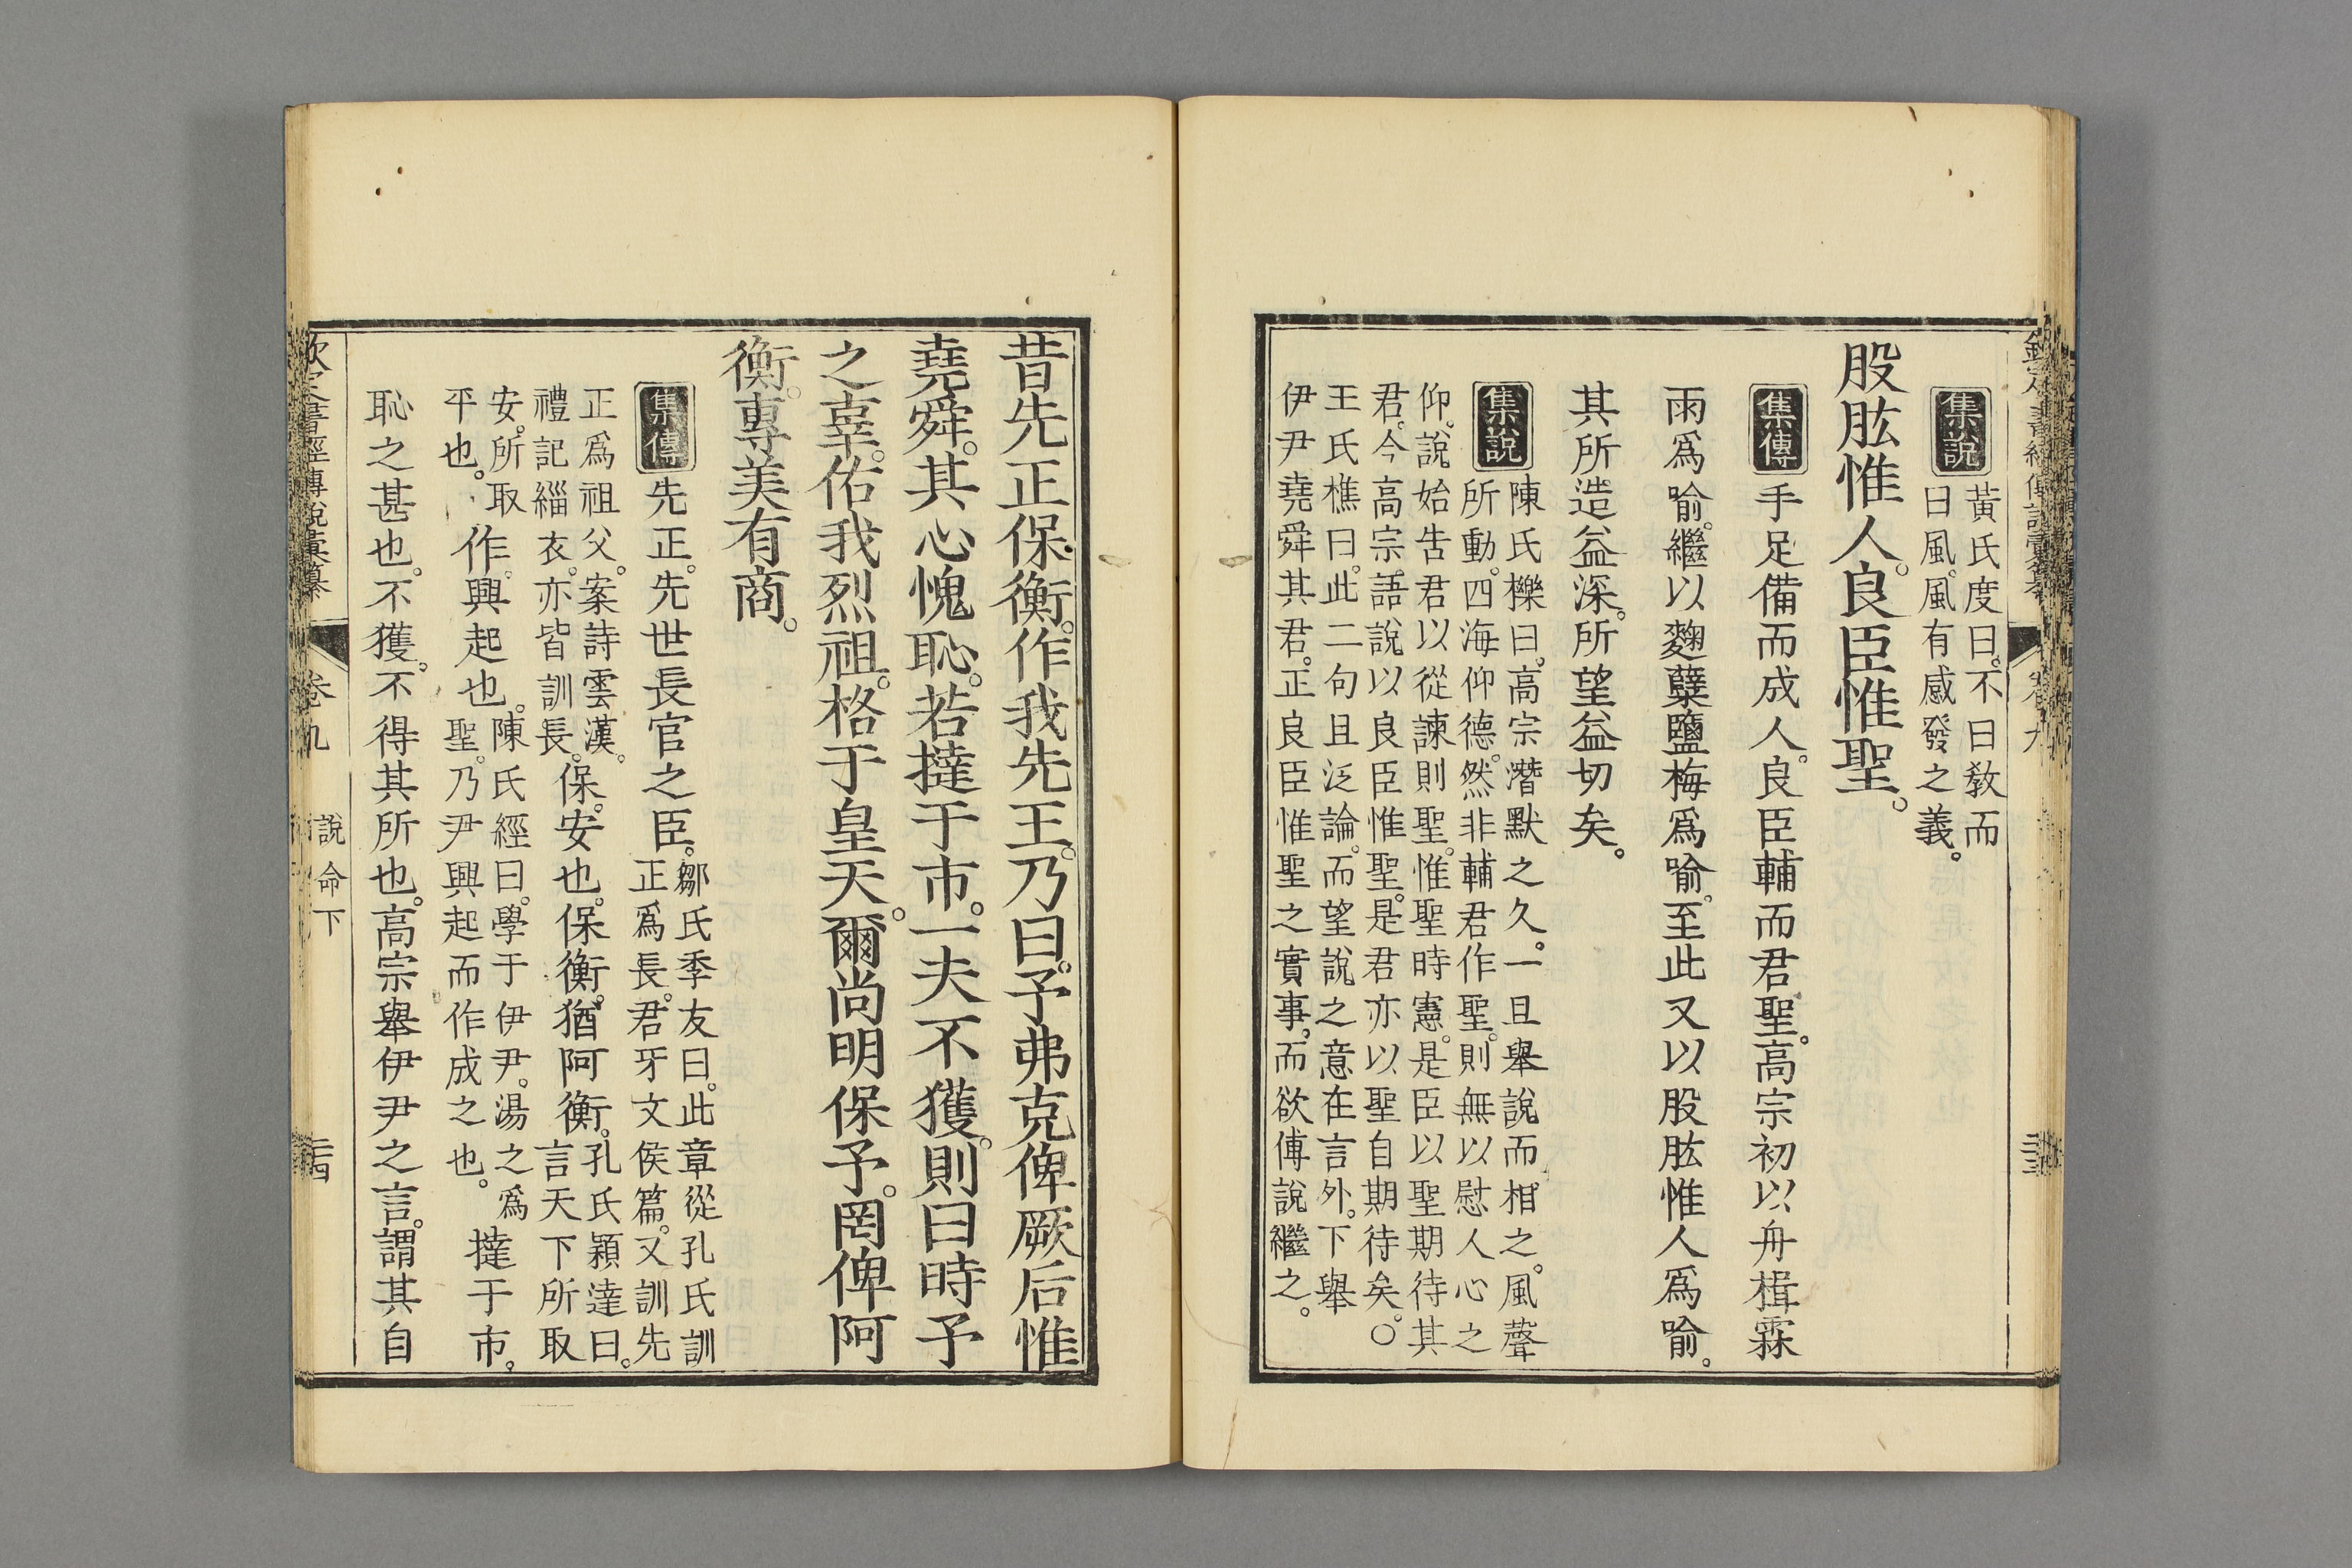 集說
黃氏度曰。不曰敎而
曰風。風有感發之義。
股肱惟人。良臣惟聖。
集傳
手足備而成人。良臣輔而君聖。高宗初以舟楫霖
雨爲喻。繼以麴糱鹽梅爲喻。至此又以股肱惟人爲喻。
其所造益深。所望益切矣。
集說
陳氏櫟曰。高宗潛默之久。一旦舉說而相之。風聲
所動。四海仰德。然非輔君作聖。則無以慰人心之
仰。說始吿君以從諫則聖。惟聖時憲。是臣以聖期待其
君。今高宗。語說以良臣惟聖。是君亦以聖自期待矣。○
王氏樵曰。此二句且泛論。而望說之意在言外。下舉
伊尹堯舜其君。正良臣惟聖之實事。而欲傅說繼之。
卷九
二十三
昔先正保衡。作我先王。乃曰。予弗克俾厥后惟
堯舜。其心愧恥。若撻于市。一夫不獲。則曰時予
之辜。佑我烈祖。格于皇天。爾尚明保予。罔俾阿
衡。專美有商。
集傳
先正。先世長官之臣。
鄒氏季友曰。此章從孔氏訓
正爲長。君牙文侯篇。又訓先
正爲祖父。案詩雲漢。
禮記緇衣。亦皆訓長。
保。安也。保衡。猶阿衡。
孔氏穎達曰。
言天下所取
安。所取
平也。
作。興起也。
陳氏經曰。學于伊尹。湯之爲
聖。乃尹興起而作成之也。
撻于市。
恥之甚也。不獲。不得其所也。高宗舉伊尹之言。謂其自
欽定書經傳說彙纂
卷九
說命下
二十四